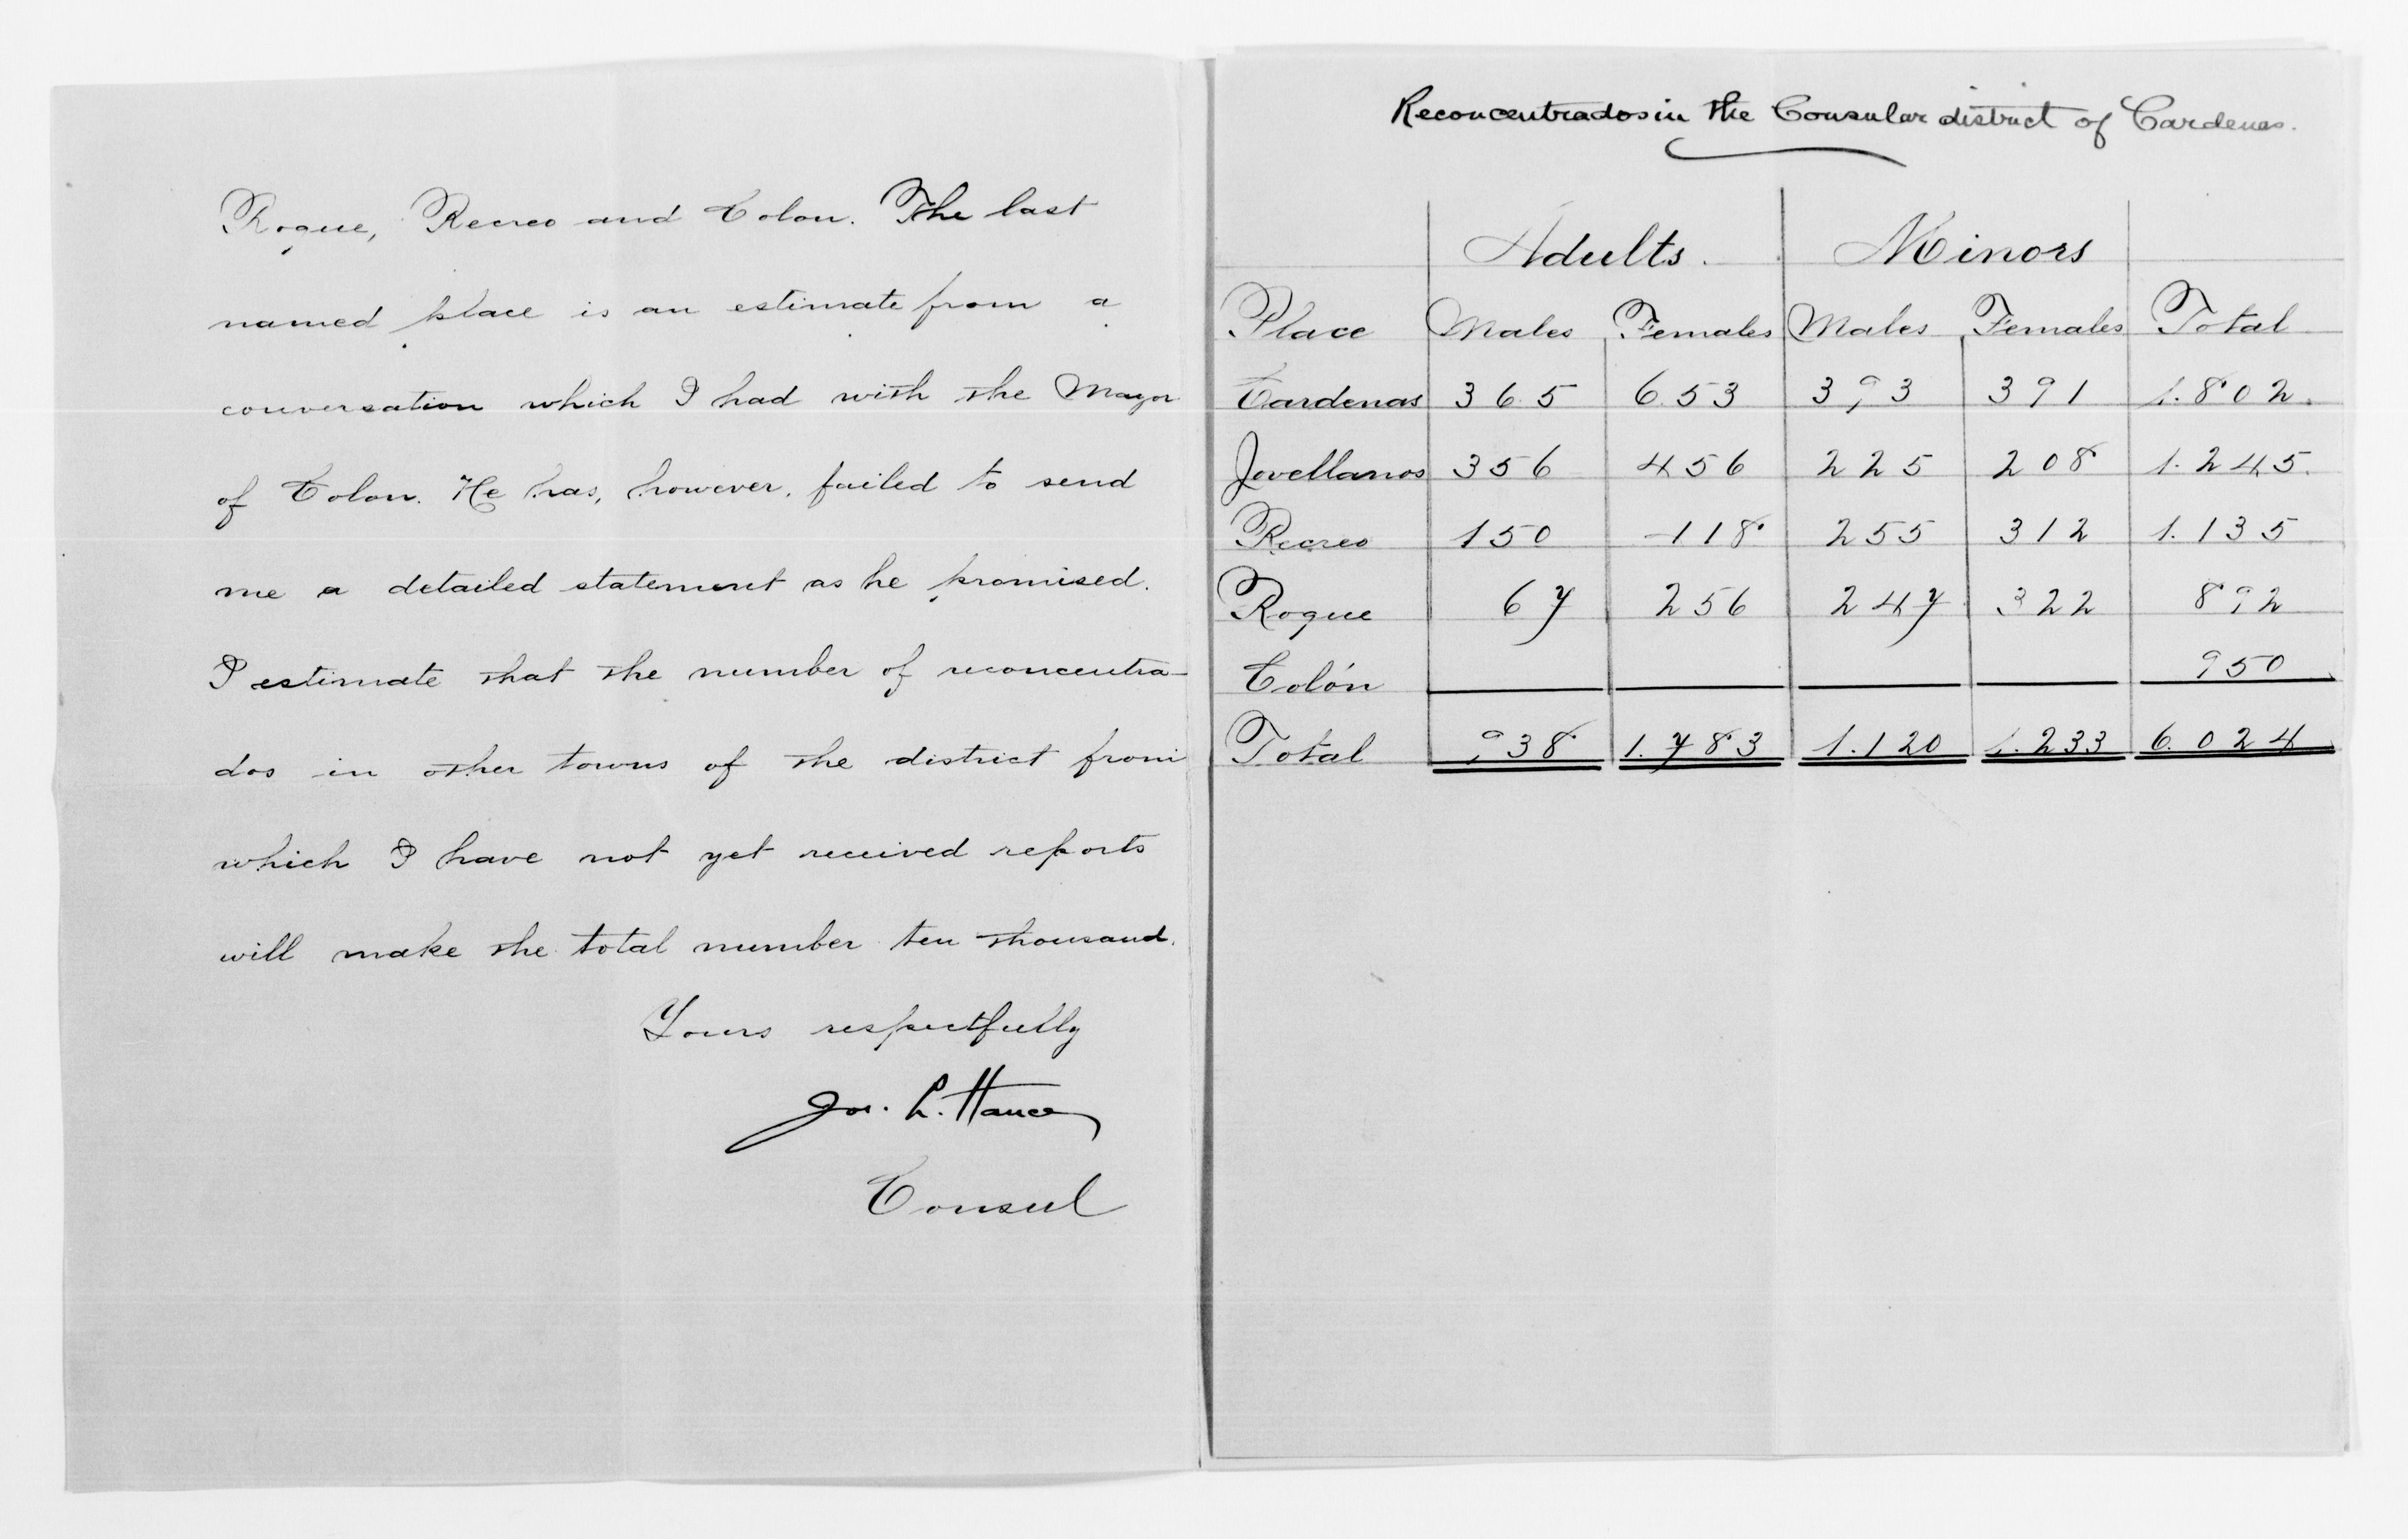 Roque, Recreo and Colon. The last
named place is an estimate from a
conversation which I had with the Mayor
of Colon. He has, however, failed to send
me a detailed statement as he promised.
I estimate that the number of reconcentra-
dos in other towns of the district from
which I have not yet received reports
will make the total number ten thousand.
Yours respectfully
Jos. L. Hance
Consul
Reconcentrados in the Consular district of Cardenas.
Adults. Minors
Place Males Females Males Females Total
Cardenas 365 653 393 391 1.802.
Jovellanos 356 456 225 208 1.245.
Recreo 150 418 255 312 1.135
Roque 67 256 247 322 892
Colón 950
Total 938 1.783 1.120 1.233 6.024